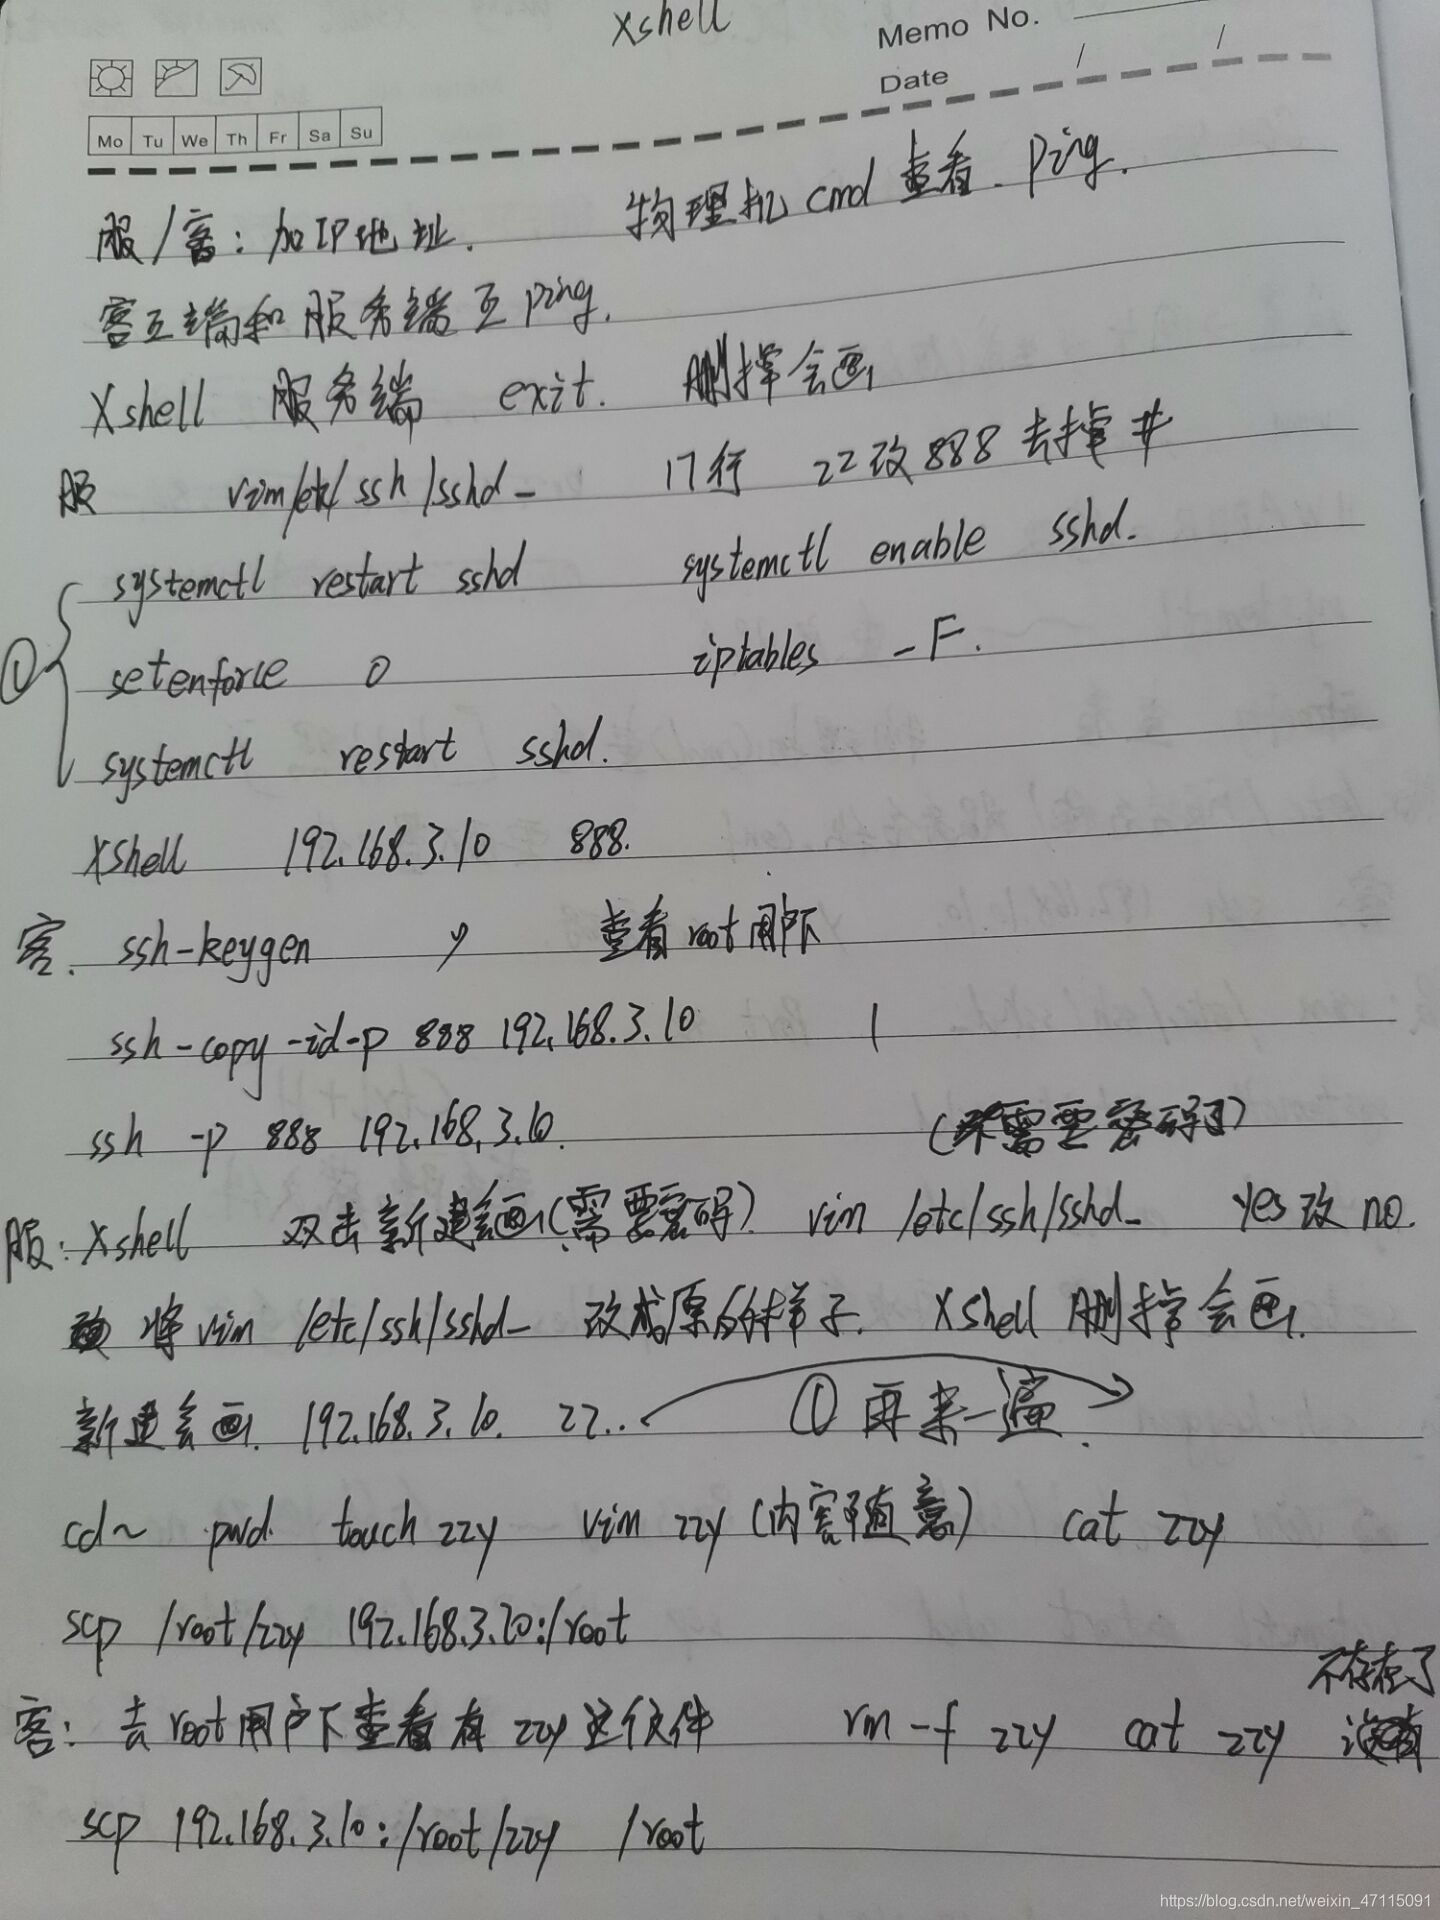 Xshell
Memo No.
Date / /
Mo Tu We Th Fr Sa Su
服/客：加IP地址. 物理机cmd查看. Ping.
客互端和服务端互ping.
Xshell 服务端 exit. 删掉会画
服 vim/etc/ssh/sshd_ 17行 22改888去掉#
systemctl restart sshd systemctl enable sshd.
① setenforce 0 iptables -F.
systemctl restart sshd.
Xshell 192.168.3.10 888.
客. ssh-keygen y 查看root用户下
ssh-copy-id-p 888 192.168.3.10 1
ssh -p 888 192.168.3.10. (不需要密码了)
服：Xshell 双击新建会画(需要密码) vim /etc/ssh/sshd_ yes改no.
将vim /etc/ssh/sshd_ 改成原的样子. Xshell 删掉会画.
新建会画. 192.168.3.10. 22.. ①再来一遍.
cd~ pwd. touch zzy vim zzy (内容随意) cat zzy
scp /root/zzy 192.168.3.20:/root
不存在了
客：去root用户下查看有zzy这个文件 rm -f zzy cat zzy
scp 192.168.3.10:/root/zzy /root
https://blog.csdn.net/weixin_47115091